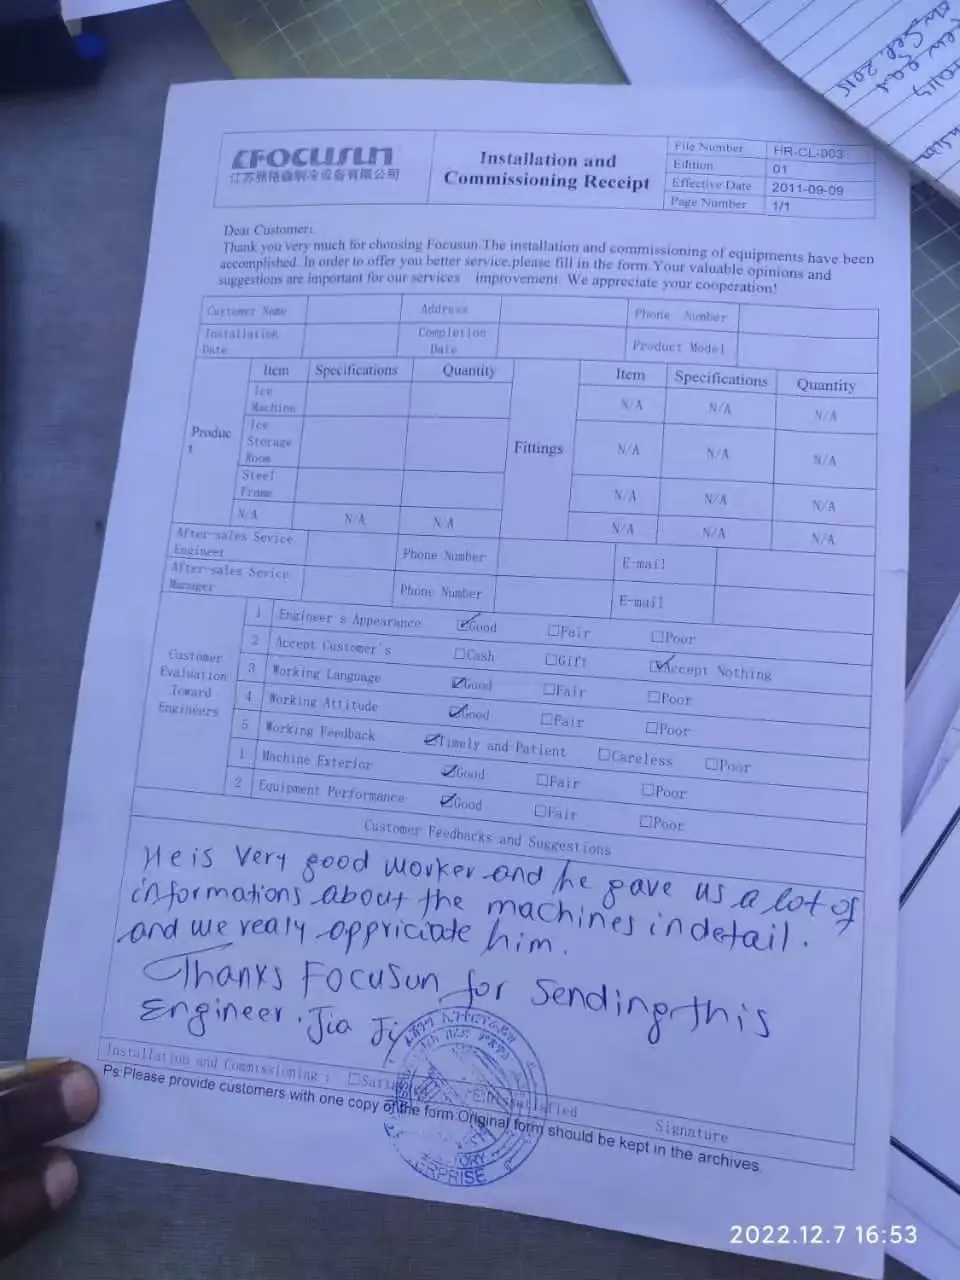 FOCUSUN
江苏弗格森制冷设备有限公司
Installation and
Commissioning Receipt
File Number HR-CL-003
Edition 01
Effective Date 2011-09-09
Page Number 1/1
Dear Customer:
Thank you very much for choosing Focusun.The installation and commissioning of equipments have been
accomplished. In order to offer you better service,please fill in the form.Your valuable opinions and
suggestions are important for our services improvement We appreciate your cooperation!
Customer Name Address Phone Number
Installation Date Completion Date Product Model
Item Specifications Quantity Item Specifications Quantity
Product
Fittings
Ice Machine N/A N/A N/A
Ice Storage Room N/A N/A N/A
Steel Frame N/A N/A N/A
N/A N/A N/A N/A N/A N/A
After-sales Sevice Engineer Phone Number E-mail
After-sales Sevice Manager Phone Number E-mail
Customer Evaluation Toward Engineers
1 Engineer's Appearance ☑Good ☐Fair ☐Poor
2 Accept Customer's ☐Cash ☐Gift ☑Accept Nothing
3 Working Language ☑Good ☐Fair ☐Poor
4 Working Attitude ☑Good ☐Fair ☐Poor
5 Working Feedback ☑Timely and Patient ☐Careless ☐Poor
1 Machine Exterior ☑Good ☐Fair ☐Poor
2 Equipment Performance ☑Good ☐Fair ☐Poor
Customer Feedbacks and Suggestions
He is Very good worker and he gave us a lot of
informations about the machines in detail.
and we realy appriciate him.
Thanks Focusun for Sending this
Engineer. Jia Ji
Installation and Commissioning :
Signature
Ps:Please provide customers with one copy of the form.Original form should be kept in the archives.
2022.12.7 16:53